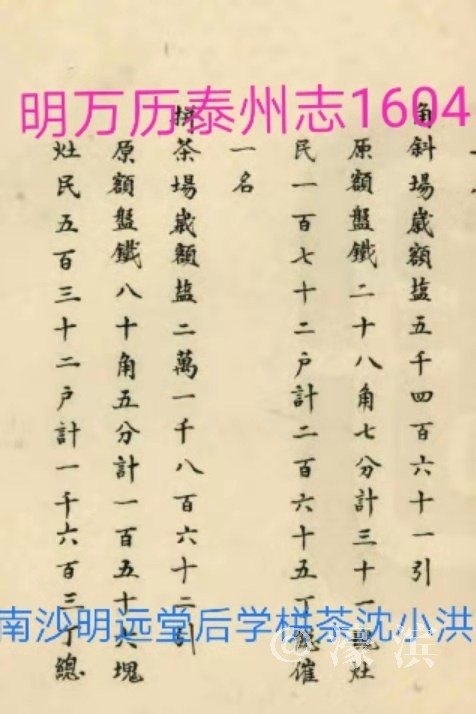 明万历泰州志1604
角斜場歲額塩五千四百六十一引
原額盤鐵二十八角七分計三十一塊灶
民一百七十二戶計二百六十五丁總催
一名
拼茶場歲額塩二萬一千八百六十二引
原額盤鐵八十角五分計一百五十六塊
灶民五百三十二戶計一千六百三丁總
南沙明远堂后学栟茶沈小洪
@濠滨